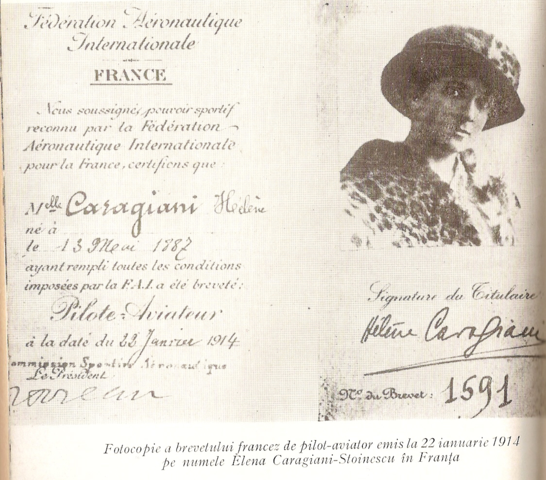 Fédération Aéronautique
Internationale
FRANCE
Nous soussigné, pouvoir sportif
reconnu par la Fédération
Aéronautique Internationale
pour la France, certifions que :
Melle Caragiani Hélène
né à
le 13 Mai 1887
ayant rempli toutes les conditions
imposées par la F.A.I. a été breveté :
Pilote-Aviateur
à la date du 22 Janvier 1914
Commission Sportive Aéronautique
Le Président :
Signature du Titulaire
Hélène Caragiani
No. du Brevet : 1591
Fotocopie a brevetului francez de pilot-aviator emis la 22 ianuarie 1914
pe numele Elena Caragiani-Stoinescu în Franţa